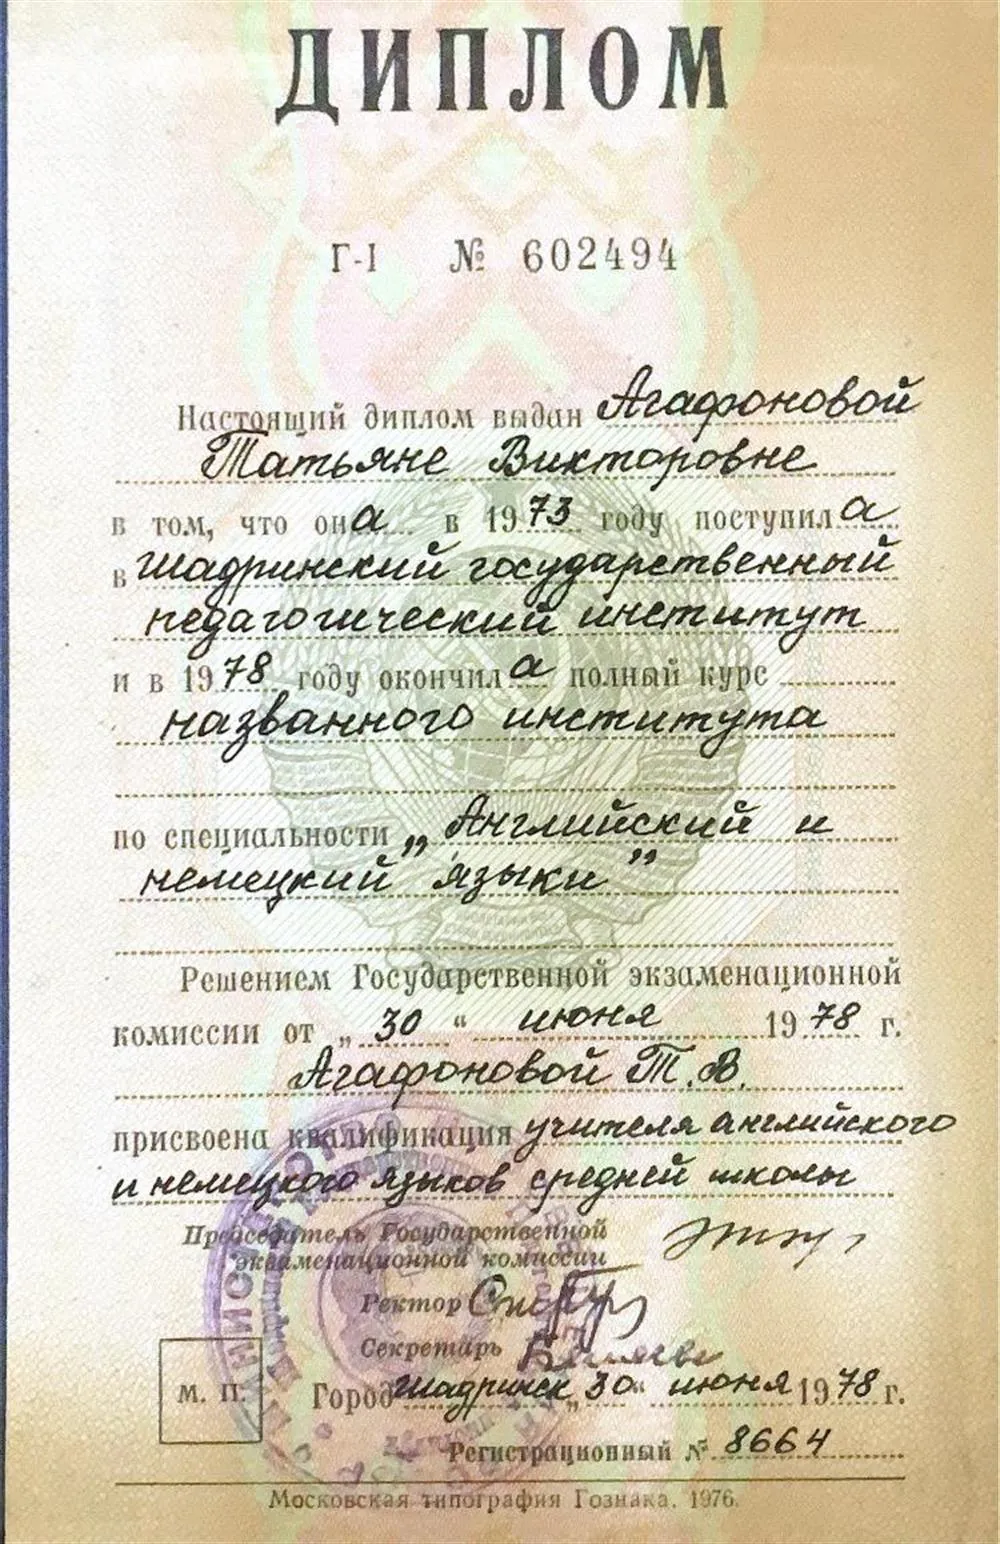 ДИПЛОМ
Г-I № 602494
Настоящий диплом выдан Агафоновой
Татьяне Викторовне
в том, что она в 1973 году поступила
в Шадринский государственный
педагогический институт
и в 1978 году окончила полный курс
названного института
по специальности „Английский и
немецкий языки”
Решением Государственной экзаменационной
комиссии от „30“ июня 1978 г.
Агафоновой Т. В.
присвоена квалификация учителя английского
и немецкого языков средней школы
Председатель Государственной
экзаменационной комиссии
Ректор
Секретарь
М. П.
Город Шадринск „30“ июня 1978 г.
Регистрационный № 8664
Московская типография Гознака. 1976.